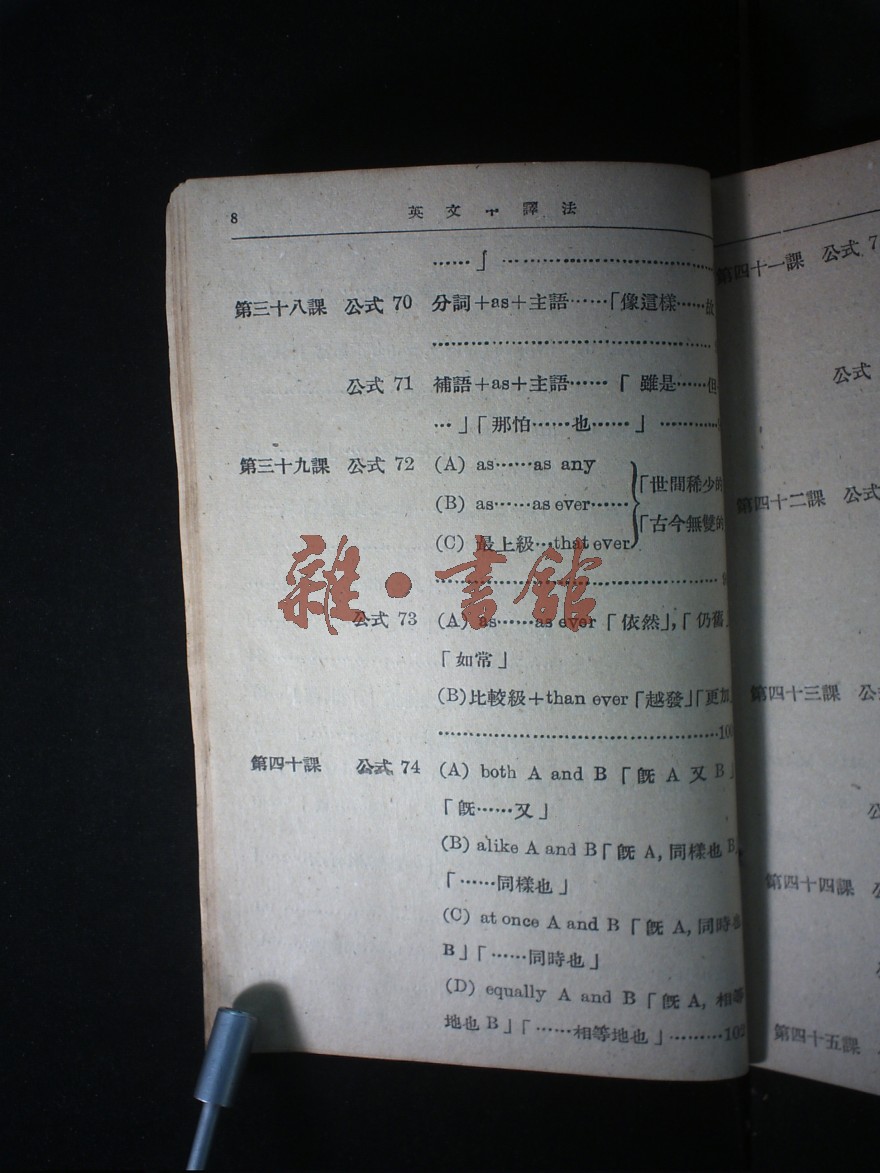 8
英文中譯法
……」…………………………
第三十八課 公式 70 分詞+as+主語……「像這樣……故
…………………………
公式 71 補語+as+主語……「雖是……但
…」「那怕……也……」…………
第三十九課 公式 72 (A) as……as any
「世間稀少的
(B) as……as ever……
「古今無雙的
(C) 最上級…that ever
…………………………
公式 73 (A) as……as ever「依然」,「仍舊」
「如常」
(B)比較級+than ever「越發」「更加」
…………………………10
第四十課 公式 74 (A) both A and B「旣 A 又 B」
「旣……又」
(B) alike A and B「旣 A, 同樣也 B,
「……同樣也」
(C) at once A and B「旣 A, 同時也
B」「……同時也」
(D) equally A and B「旣 A, 相等
地也 B」「……相等地也」………102
第四十一課 公式 7
公式
第四十二課 公式
第四十三課 公
公
第四十四課
第四十五課
雜·書館